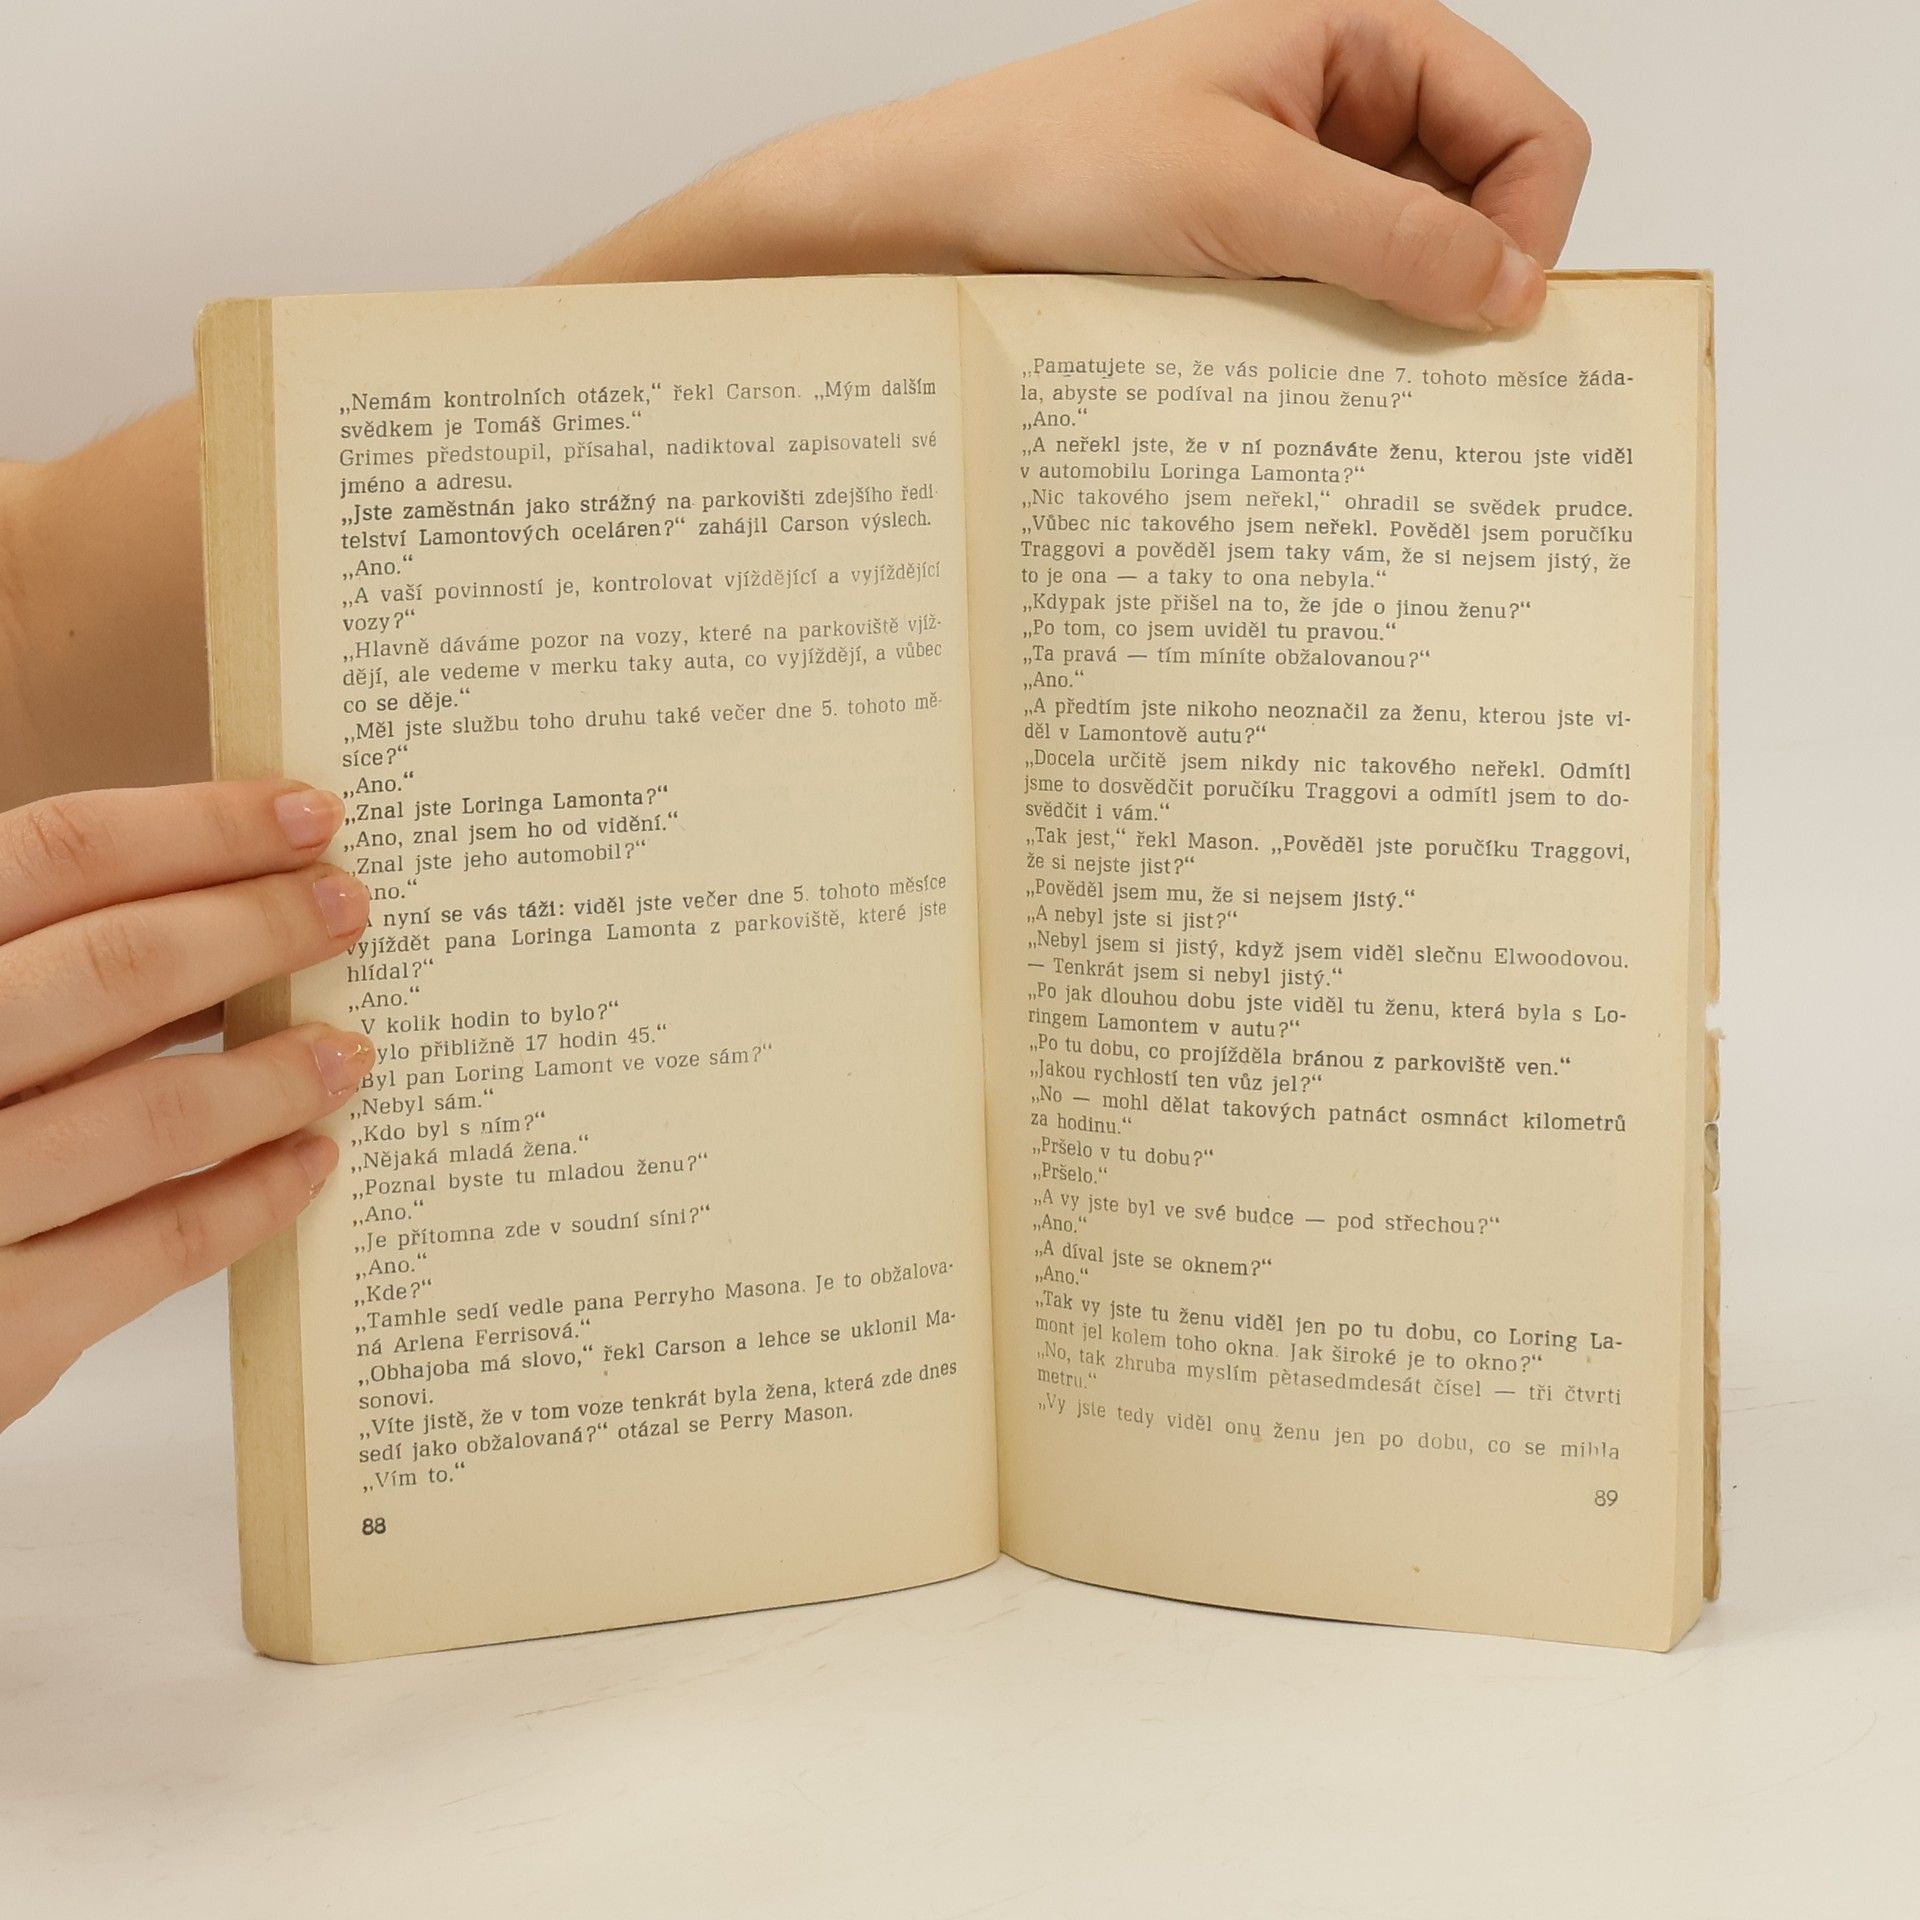 „Nemám kontrolních otázek,“ řekl Carson. „Mým dalším
svědkem je Tomáš Grimes.“
Grimes předstoupil, přísahal, nadiktoval zapisovateli své
jméno a adresu.
„Jste zaměstnán jako strážný na parkovišti zdejšího ředi-
telství Lamontových oceláren?“ zahájil Carson výslech.
„Ano.“
„A vaší povinností je, kontrolovat vjíždějící a vyjíždějící
vozy?“
„Hlavně dáváme pozor na vozy, které na parkoviště vjíž-
dějí, ale vedeme v merku taky auta, co vyjíždějí, a vůbec
co se děje.“
„Měl jste službu toho druhu také večer dne 5. tohoto mě-
síce?“
„Ano.“
„Znal jste Loringa Lamonta?“
„Ano, znal jsem ho od vidění.“
„Znal jste jeho automobil?“
Ano.“
nyní se vás táži: viděl jste večer dne 5. tohoto měsíce
vyjíždět pana Loringa Lamonta z parkoviště, které jste
hlídal?“
„Ano.“
„V kolik hodin to bylo?“
ylo přibližně 17 hodin 45.“
„Byl pan Loring Lamont ve voze sám?“
„Nebyl sám.“
„Kdo byl s ním?“
„Nějaká mladá žena.“
„Poznal byste tu mladou ženu?“
„Ano.“
„Je přítomna zde v soudní síni?“
„Ano.“
„Kde?“
„Tamhle sedí vedle pana Perryho Masona. Je to obžalova-
ná Arlena Ferrisová.“
„Obhajoba má slovo,“ řekl Carson a lehce se uklonil Ma-
sonovi.
„Víte jistě, že v tom voze tenkrát byla žena, která zde dnes
sedí jako obžalovaná?“ otázal se Perry Mason.
„Vím to.“
88
„Pamatujete se, že vás policie dne 7. tohoto měsíce žáda-
la, abyste se podíval na jinou ženu?“
„Ano.“
„A neřekl jste, že v ní poznáváte ženu, kterou jste viděl
v automobilu Loringa Lamonta?“
„Nic takového jsem neřekl,“ ohradil se svědek prudce.
„Vůbec nic takového jsem neřekl. Pověděl jsem poručíku
Traggovi a pověděl jsem taky vám, že si nejsem jistý, že
to je ona — a taky to ona nebyla.“
„Kdypak jste přišel na to, že jde o jinou ženu?“
„Po tom, co jsem uviděl tu pravou.“
„Ta pravá — tím míníte obžalovanou?“
„Ano.“
„A předtím jste nikoho neoznačil za ženu, kterou jste vi-
děl v Lamontově autu?“
„Docela určitě jsem nikdy nic takového neřekl. Odmítl
jsme to dosvědčit poručíku Traggovi a odmítl jsem to do-
svědčit i vám.“
„Tak jest,“ řekl Mason. „Pověděl jste poručíku Traggovi,
že si nejste jist?“
„Pověděl jsem mu, že si nejsem jistý.“
„A nebyl jste si jist?“
„Nebyl jsem si jistý, když jsem viděl slečnu Elwoodovou.
— Tenkrát jsem si nebyl jistý.“
„Po jak dlouhou dobu jste viděl tu ženu, která byla s Lo-
ringem Lamontem v autu?“
„Po tu dobu, co projížděla bránou z parkoviště ven.“
„Jakou rychlostí ten vůz jel?“
„No — mohl dělat takových patnáct osmnáct kilometrů
za hodinu.“
„Pršelo v tu dobu?“
„Pršelo.“
„A vy jste byl ve své budce — pod střechou?“
„Ano.“
„A díval jste se oknem?“
„Ano.“
„Tak vy jste tu ženu viděl jen po tu dobu, co Loring La-
mont jel kolem toho okna. Jak široké je to okno?“
„No, tak zhruba myslím pètasedmdesát čísel — tři čtvrti
metru.“
„Vy jste tedy viděl onu ženu jen po dobu, co se mihla
89